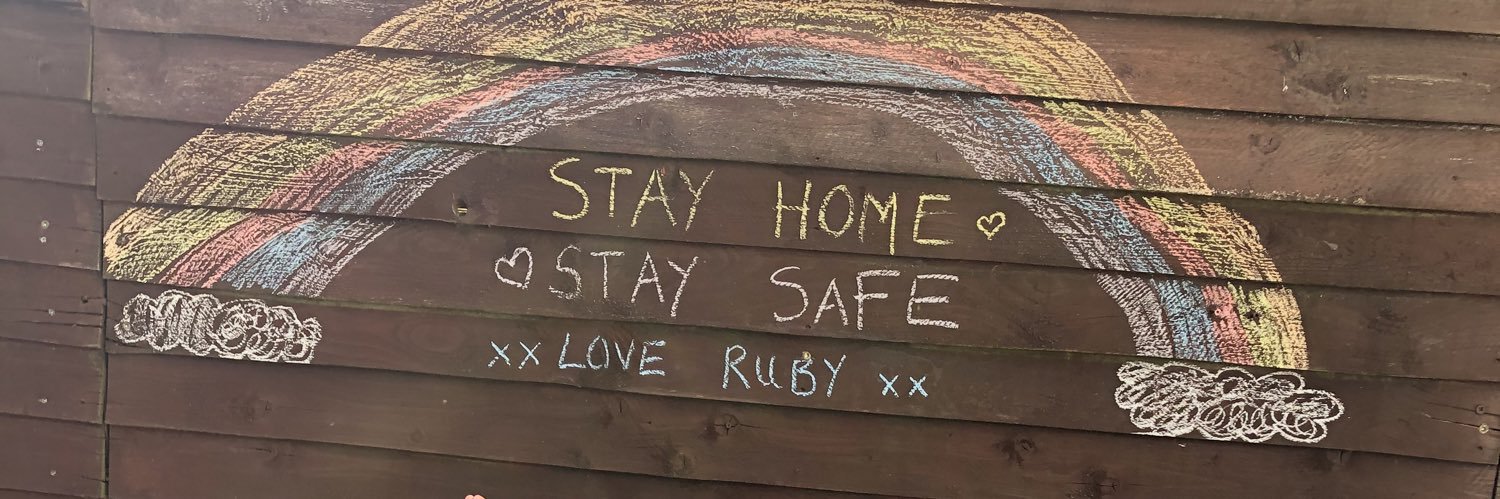 STAY HOME ♡
♡ STAY SAFE
xx LOVE RUBY xx